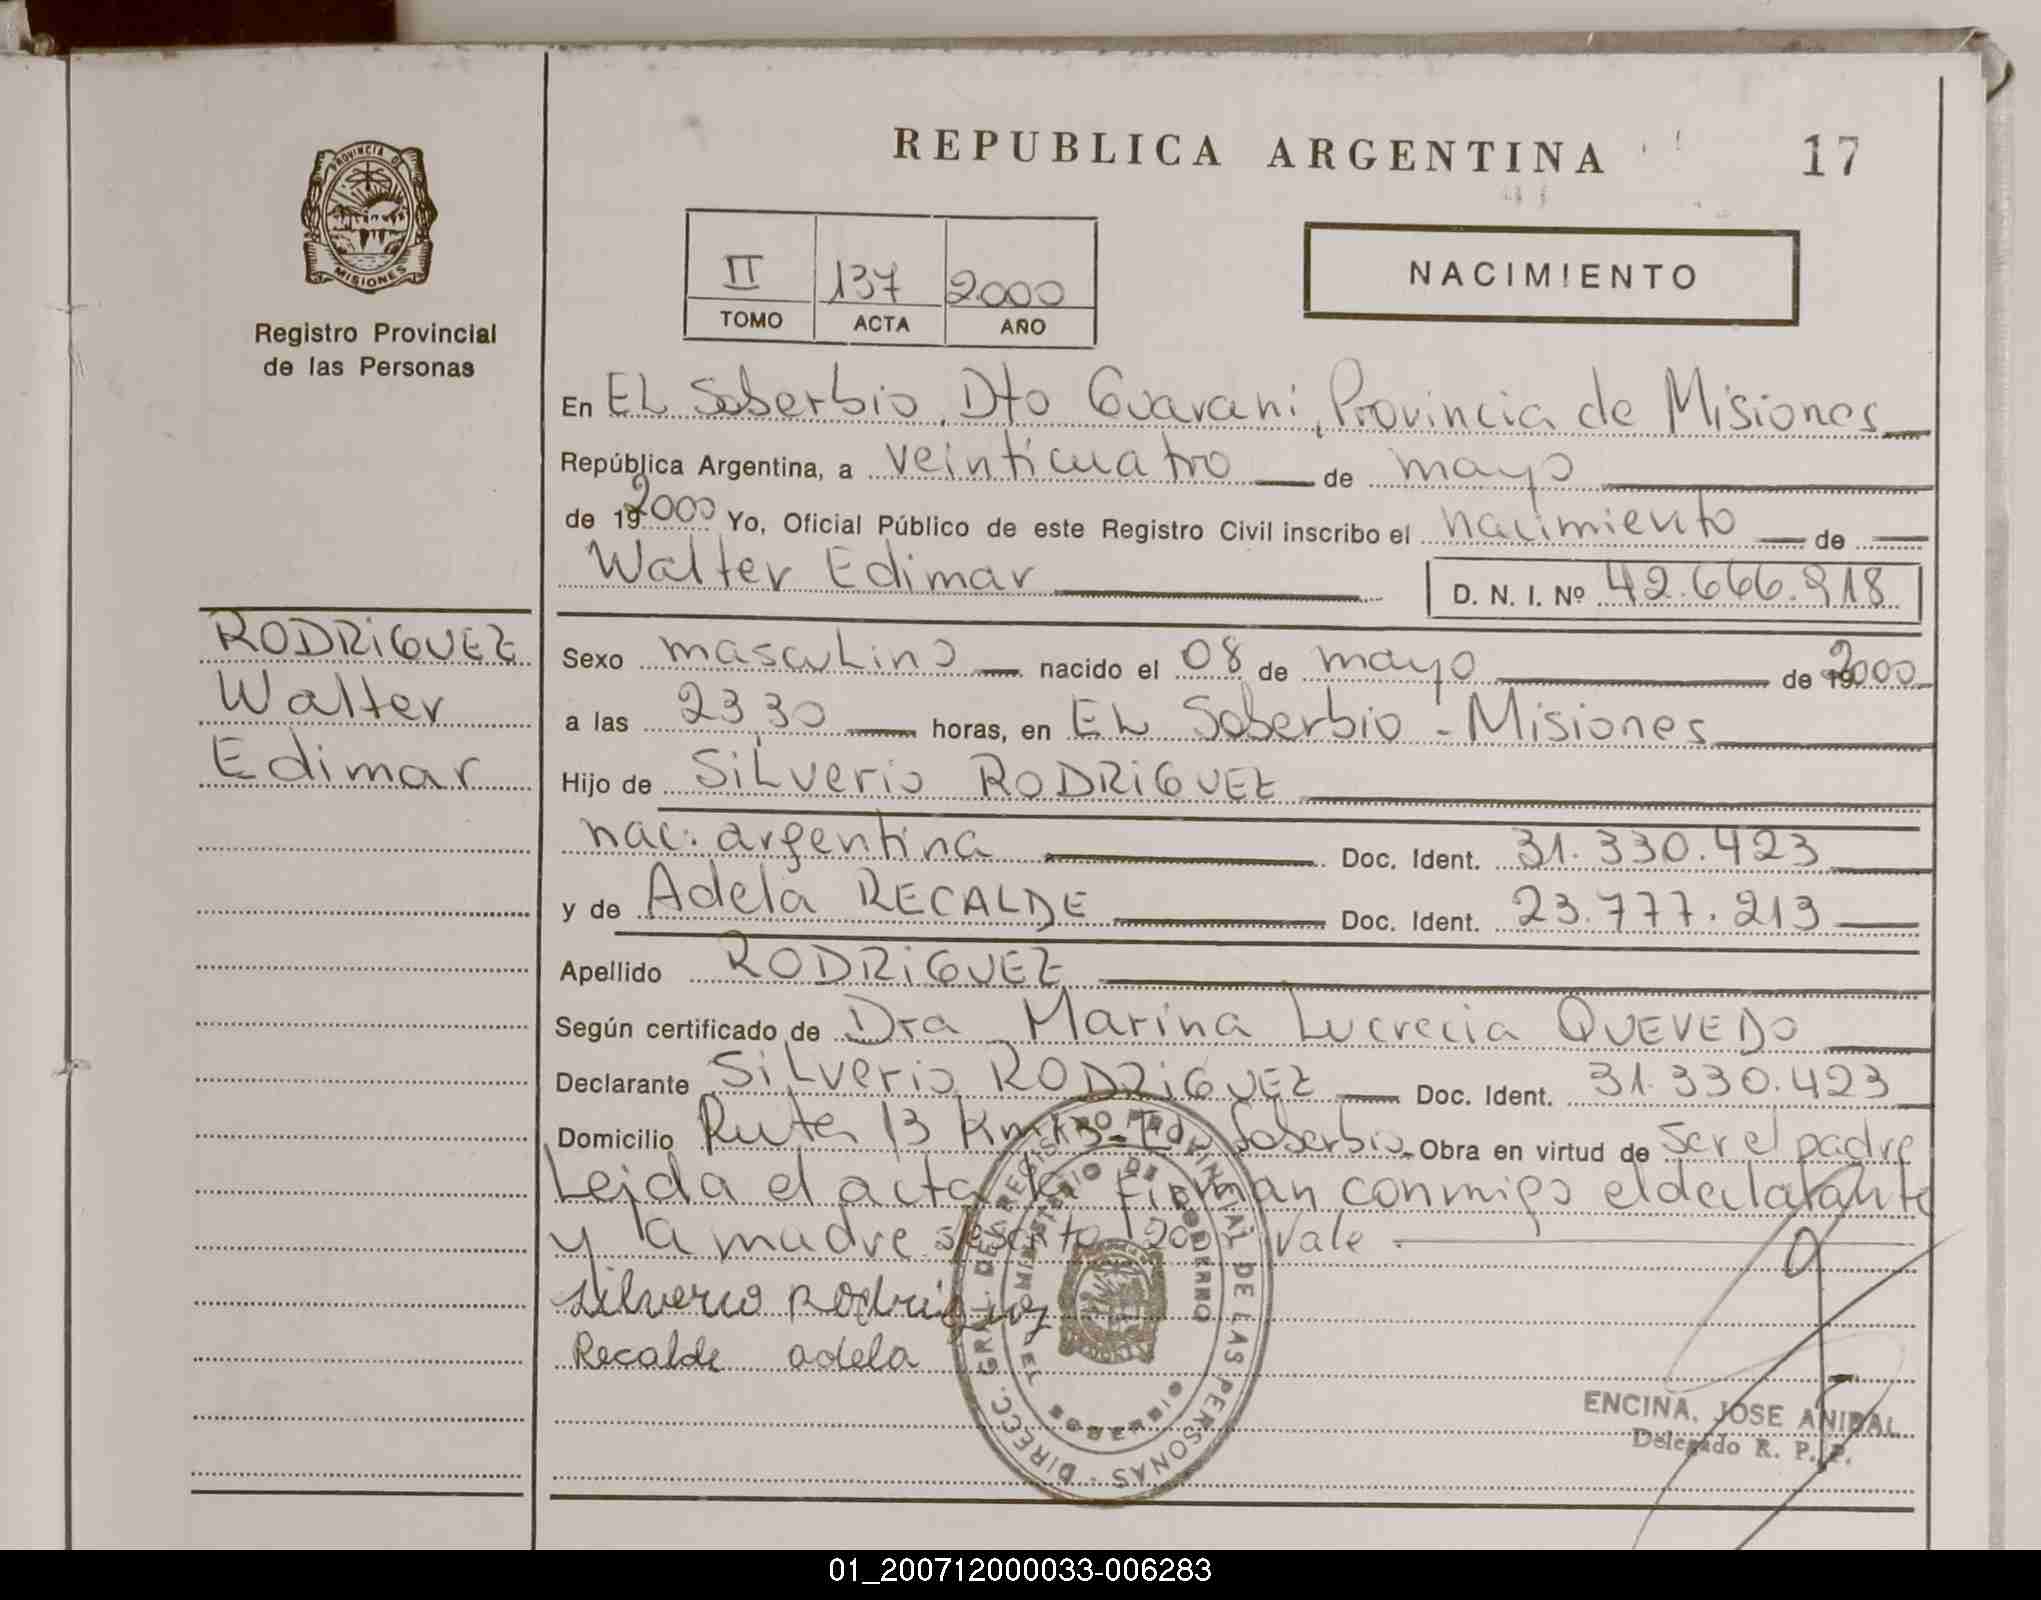 REPUBLICA ARGENTINA
17
PROVINCIA DE
MISIONES
Registro Provincial
de las Personas
II 137 2000
TOMO ACTA AÑO
NACIMIENTO
En EL Soberbio, Dto Guarani, Provincia de Misiones
República Argentina, a veinticuatro de mayo
de 19 2000 Yo, Oficial Público de este Registro Civil inscribo el nacimiento de
Walter Edimar
D. N. I. Nº 42.666.918
RODRIGUEZ
Walter
Edimar
Sexo masculino nacido el 08 de mayo de 19 2000
a las 23,30 horas, en EL Soberbio - Misiones
Hijo de SiLverio RODRIGUEZ
nac. argentina Doc. Ident. 31.330.423
y de Adela RECALDE Doc. Ident. 23.777.213
Apellido RODRIGUEZ
Según certificado de Dra Marina Lucrecia QUEVEDO
Declarante SiLverio RODRIGUEZ Doc. Ident. 31.330.423
Domicilio Ruta 13 Km Soberbio. Obra en virtud de ser el padre
Leida el acta la Firman conmigo el declarante
y la madre 2000 Vale
silverio Rodriguez
Recalde adela
DIRECC. GRAL. DEL REGISTRO PROVINCIAL DE LAS PERSONAS
MINISTERIO DE GOBIERNO
SOBERBIO
ENCINA, JOSE ANIBAL
Delegado R. P. P.
01_200712000033-006283